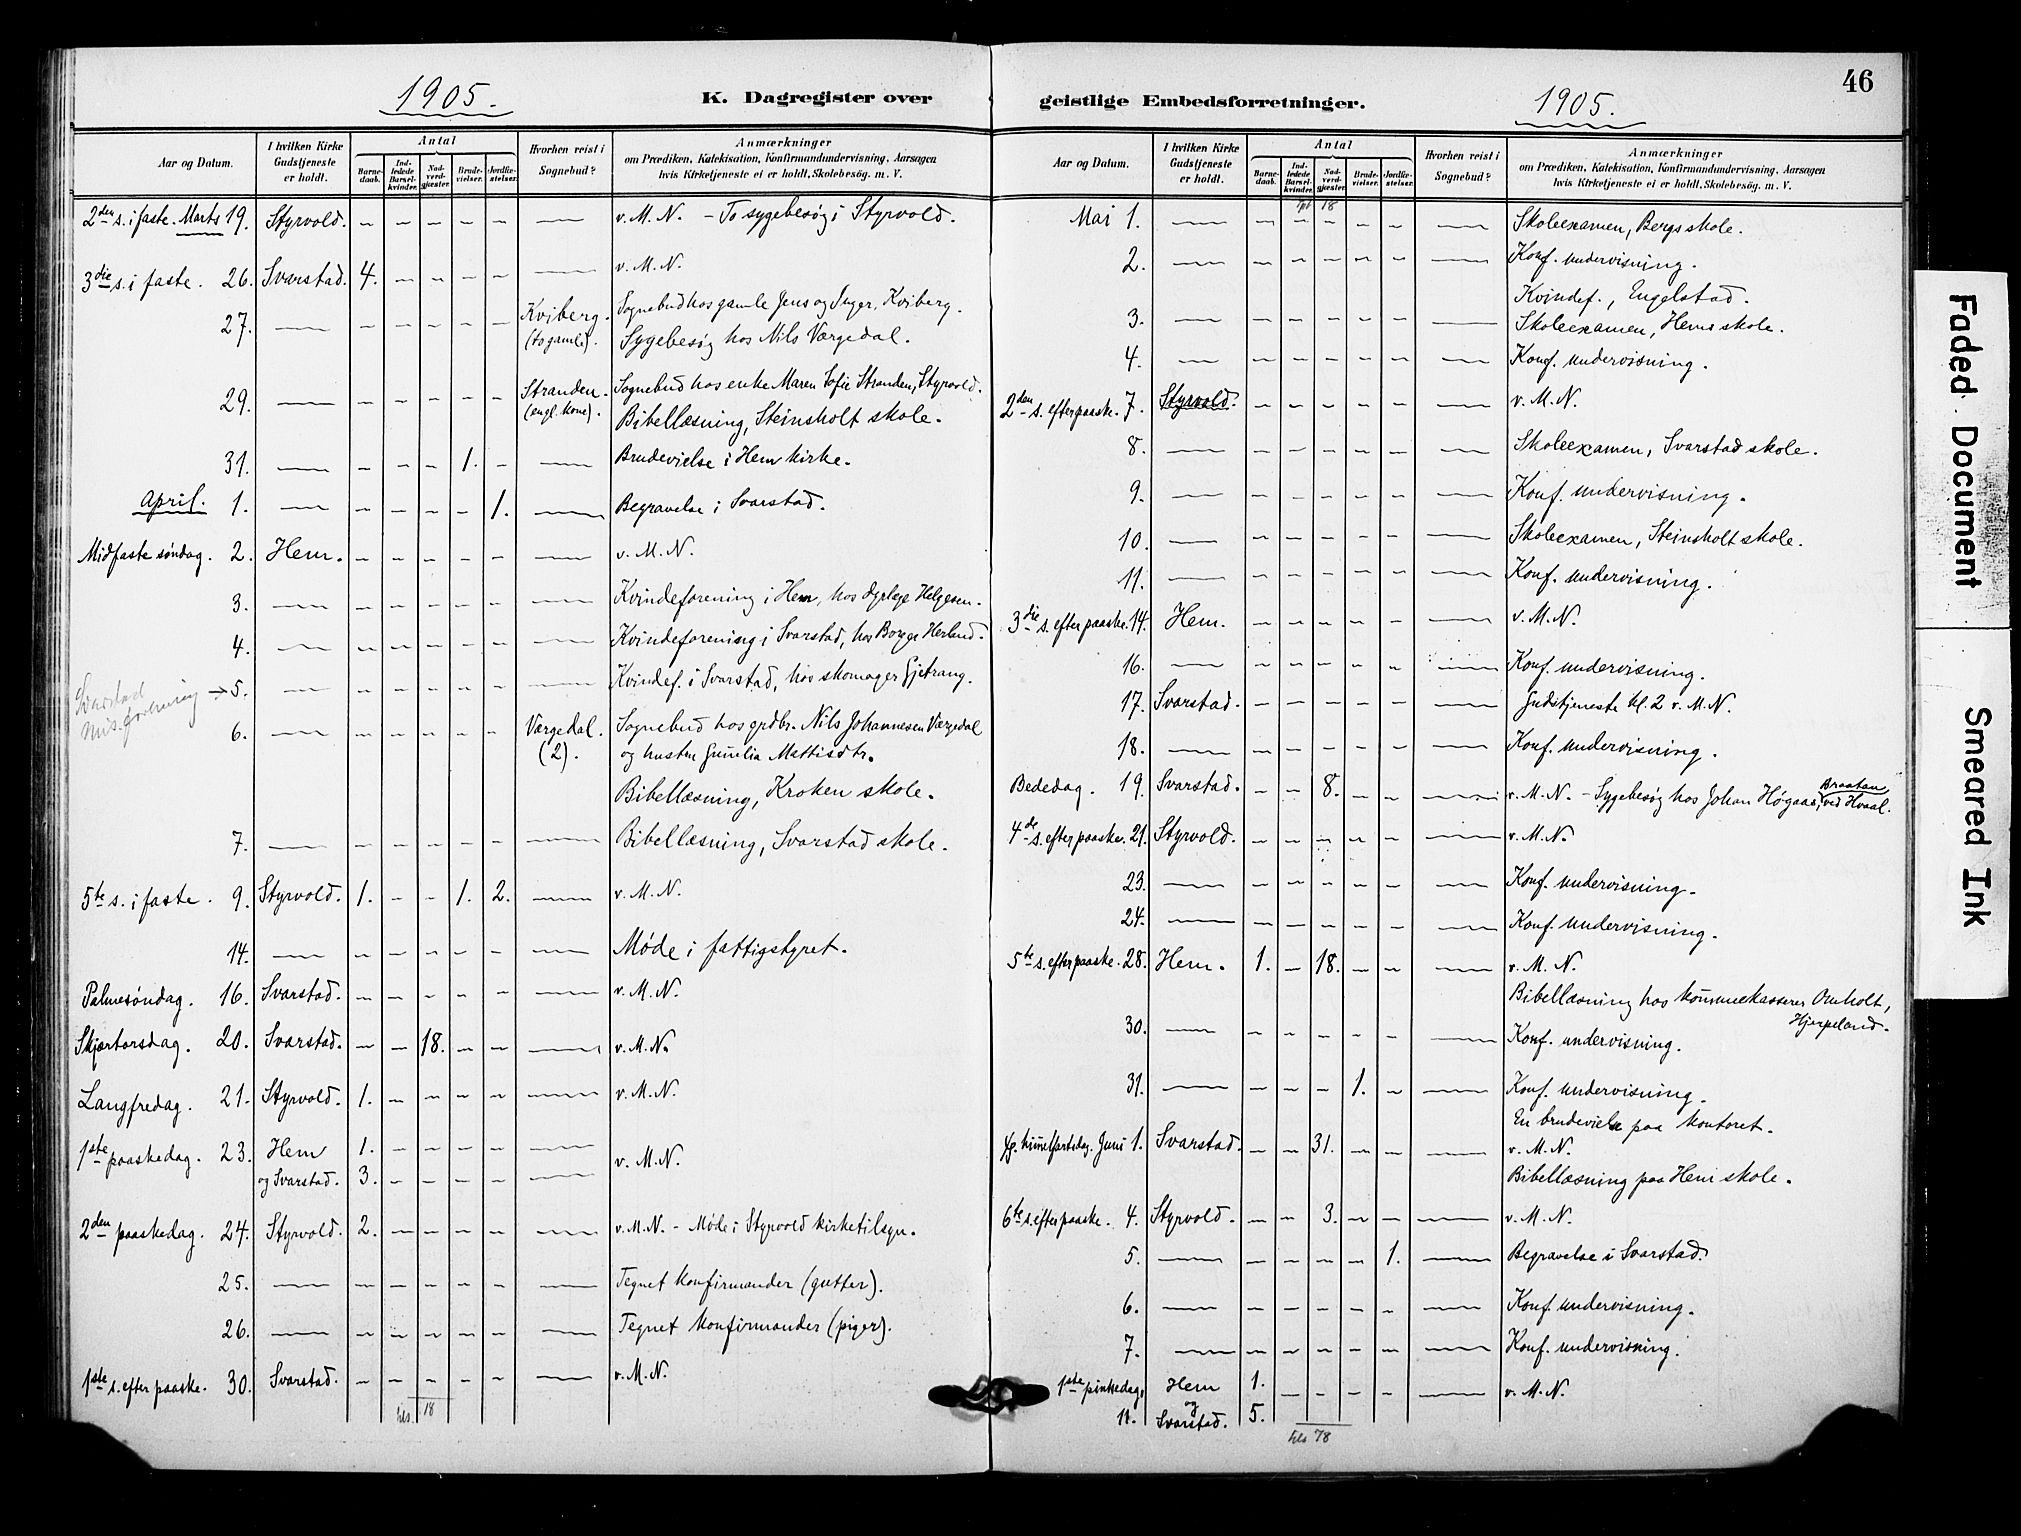 1905.
K. Dagregister over
Aar og Datum. | I hvilken Kirke Gudstjeneste er holdt. | Antal | Barnedaab. | Indledede Barselkvinder. | Nadverdgjæster. | Brudevielser. | Jordfæstelser. | Hvorhen reist i Sognebud? | Anmærkninger om Prædiken, Katekisation, Konfirmandundervisning, Aarsagen hvis Kirketjeneste ei er holdt, Skolebesøg. m. V.
2den s. i faste. Marts 19. | Styrvold. | – | – | – | – | – | — | v. M. N. – To sygebesøg i Styrvold.
3die s. i faste. 26. | Svarstad. | 4. | – | – | – | – | — | v. M. N.
27. | — | – | – | – | – | – | Kviberg. (to gamle). | Sognebud hos gamle Jens og Inger, Kviberg.
Sygebesøg hos Nils Værgedal.
29. | — | – | – | – | – | – | Stranden. (engl. kone). | Sognebud hos enke Maren Sofie Stranden, Styrvold.
Bibellæsning, Steinsholt skole.
31. | — | – | – | – | 1. | – | — | Brudevielse i Hem kirke.
April. 1. | — | – | – | – | – | 1. | — | Begravelse i Svarstad.
Midfaste søndag. 2. | Hem. | – | – | – | – | – | — | v. M. N.
3. | — | – | – | – | – | – | — | Kvindeforening i Hem, hos dyrlæge Helgesen.
4. | — | – | – | – | – | – | — | Kvindeforening i Svarstad, hos Borge Herland.
Svarstad Misforening → 5. | — | – | – | – | – | – | — | Kvindef. i Svarstad, hos skomager Gjetrang.
6. | — | – | – | – | – | – | Værgedal. (2). | Sognebud hos grdbr. Nils Johannesen Værgedal
og hustru Gunilia Mattisdtr.
Bibellæsning, Kroken skole.
7. | — | – | – | – | – | – | — | Bibellæsning, Svarstad skole.
5te s. i faste. 9. | Styrvold. | 1. | – | – | 1. | 2. | — | v. M. N.
14. | — | – | – | – | – | – | — | Møde i fattigstyret.
Palmesøndag. 16. | Svarstad. | – | – | – | – | – | — | v. M. N.
Skjærtorsdag. 20. | Svarstad. | – | – | 18. | – | – | — | v. M. N.
Langfredag. 21. | Styrvold. | 1. | – | – | – | – | — | v. M. N.
1ste paaskedag. 23. | Hem | 1. | – | – | – | – | — | v. M. N.
og Svarstad. | 3. | – | – | – | – | —
2den paaskedag. 24. | Styrvold. | 2. | – | – | – | – | — | v. M. N. – Møde i Styrvold kirketilsyn.
25. | — | – | – | – | – | – | — | Tegnet konfirmander (gutter).
26. | — | – | – | – | – | – | — | Tegnet konfirmander (piger).
1ste s. efter paaske. 30. | Svarstad. | – | – | – | – | – | — | v. M. N.
tils. 18
geistlige Embedsforretninger.
1905.
46
Aar og Datum. | I hvilken Kirke Gudstjeneste er holdt. | Antal | Barnedaab. | Indledede Barselkvinder. | Nadverdgjæster. | Brudevielser. | Jordfæstelser. | Hvorhen reist i Sognebud? | Anmærkninger om Prædiken, Katekisation, Konfirmandundervisning, Aarsagen hvis Kirketjeneste ei er holdt, Skolebesøg. m. V.
18
Mai 1. | — | – | – | – | – | – | — | Skoleexamen, Bergs skole.
2. | — | – | – | – | – | – | — | Konf. undervisning.
Kvindef., Engelstad.
3. | — | – | – | – | – | – | — | Skoleexamen, Hems skole.
4. | — | – | – | – | – | – | — | Konf. undervisning.
2den s. efter paaske. 7. | Styrvold. | – | – | – | – | – | — | v. M. N.
8. | — | – | – | – | – | – | — | Skoleexamen, Svarstad skole.
9. | — | – | – | – | – | – | — | Konf. undervisning.
10. | — | – | – | – | – | – | — | Skoleexamen, Steinsholt skole.
11. | — | – | – | – | – | – | — | Konf. undervisning.
3die s. efter paaske. 14. | Hem. | – | – | – | – | – | — | v. M. N.
16. | — | – | – | – | – | – | — | Konf. undervisning.
17. | Svarstad. | – | – | – | – | – | — | Gudstjeneste kl. 2 v. M. N.
18. | — | – | – | – | – | – | — | Konf. undervisning.
Bededag. 19. | Svarstad. | – | – | 8. | – | – | — | v. M. N. – Sygebesøg hos Johan Høgaas, Braatan, ved Hvaal.
4de s. efter paaske. 21. | Styrvold. | – | – | – | – | – | — | v. M. N.
23. | — | – | – | – | – | – | — | Konf. undervisning.
24. | — | – | – | – | – | – | — | Konf. undervisning.
5te s. efter paaske. 28. | Hem. | 1. | – | 18. | – | – | — | v. M. N.
Bibellæsning hos kommunekasserer Omholt,
Hjerpeland.
30. | — | – | – | – | – | – | — | Konf. undervisning.
31. | — | – | – | – | 1. | – | — | Konf. undervisning.
En brudevielse paa kontoret.
Kr. himmelfartsdag. Juni 1. | Svarstad. | – | – | 31. | – | – | — | v. M. N.
Bibellæsning paa Hem skole.
6te s. efter paaske. 4. | Styrvold. | – | – | 3. | – | – | — | v. M. N.
5. | — | – | – | – | – | 1. | — | Begravelse i Svarstad.
6. | — | – | – | – | – | – | — | Konf. undervisning.
7. | — | – | – | – | – | – | — | Konf. undervisning.
1ste pinsedag, | Hem | 1. | – | – | – | – | — | v. M. N.
11. | og Svarstad. | 5.
tils 78
Faded Document
Smeared Ink